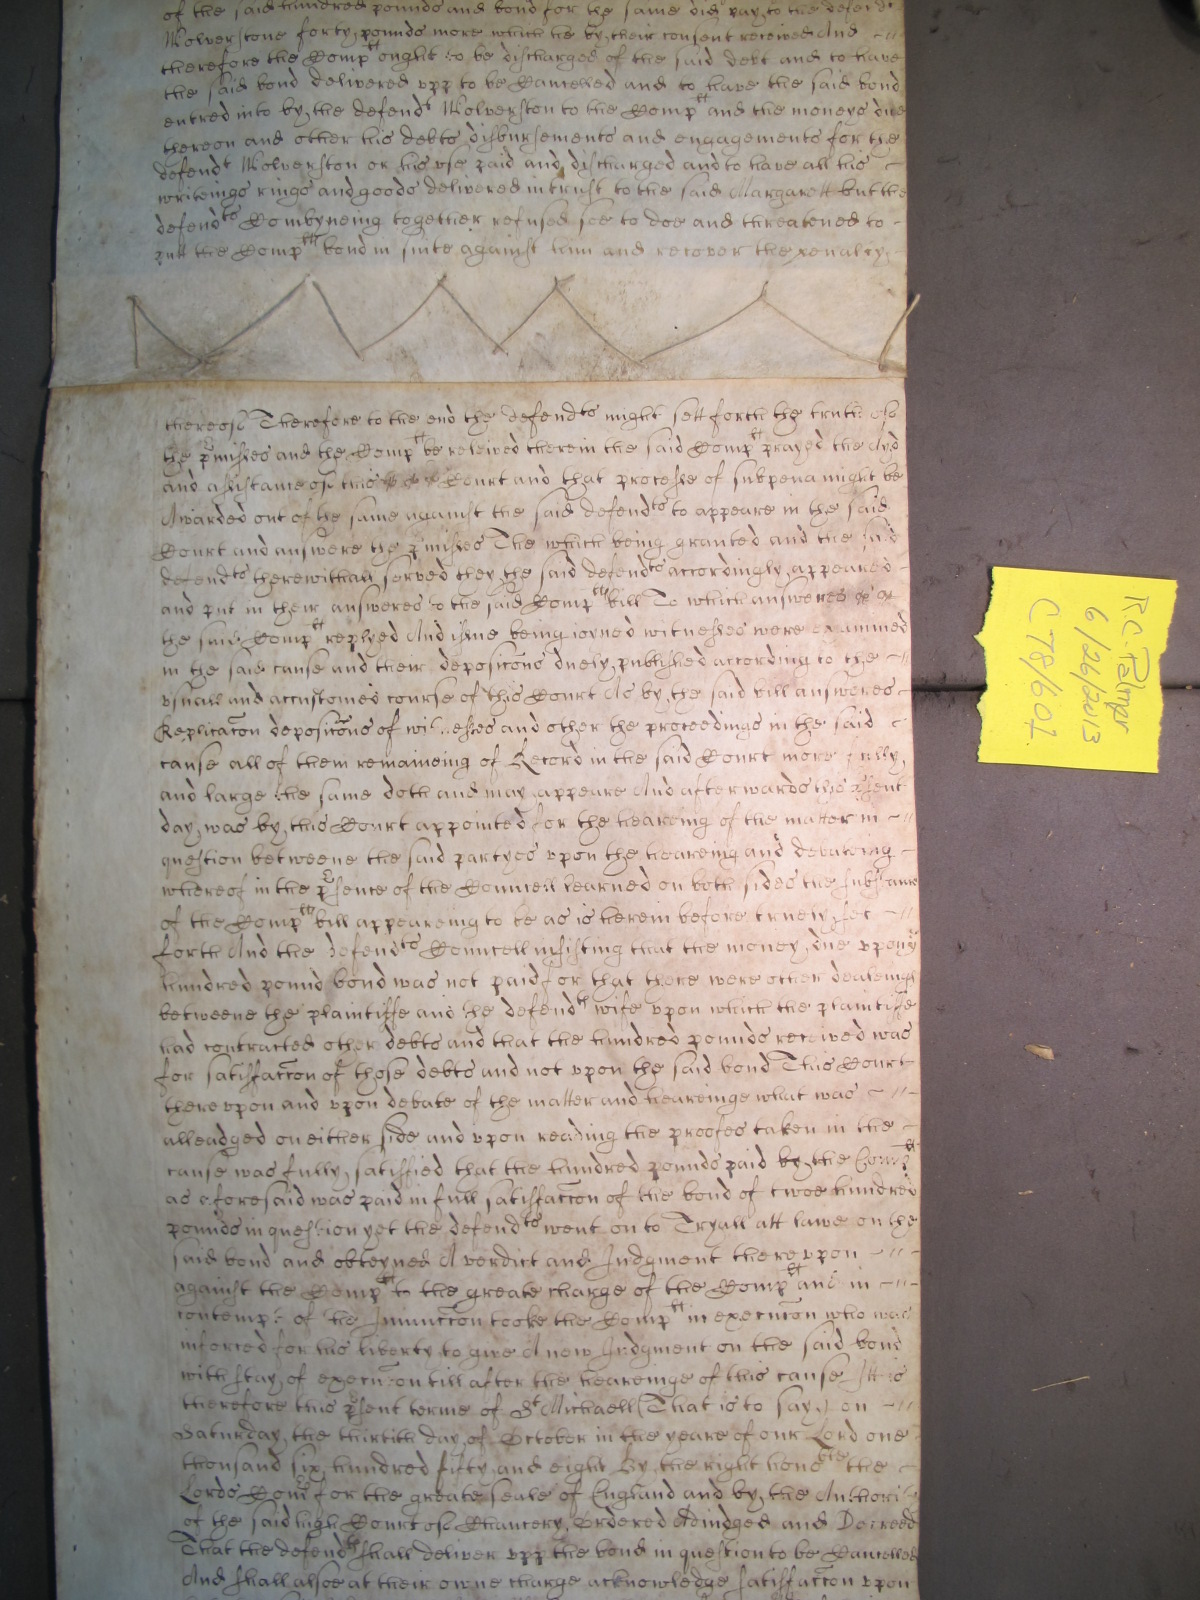 of the said hundred pounds and bond for the same did pay to the defendt
Wolverstone forty pounds more which he by their consent received And
therefore the Complt ought to be discharged of the said debt and to have
the said bond delivered upp to be Cancelled and to have the said bond
entred into by the defendt Wolverston to the Complt and the moneys due
thereon and other his debts disbursements and engagements for the
defendt Wolverston or his use paid and discharged and to have all his
writeings rings and goods delivered in trust to the said Margarett but the
defendts Combyneing together refused soe to doe and threatened to
putt the Complts bond in suite against him and recover the penalty
thereof Therefore to the end the defendts might sett forth the truth of
the p'misses and the Complt be releived therein the said Complt prayed the Ayd
and assistance of this Court and that processe of subpena might be
Awarded out of the same against the said defendts to appeare in the said
Court and answere the p'misses The which being granted and the said
defendts therewithall served they the said defendts accordingly appeared
and put in their answeres to the said Complts bill To which answeres
the said Complt replyed And issue being ioyned witnesses were examined
in the said cause and their depositons duely published according to the
usuall and accustomed course of this Court As by the said bill answeres
Replicaton depositons of witnesses and other the proceedings in the said
cause all of them remaineing of Record in the said Court more fully
and large the same doth and may appeare And afterwards this p'sent
day was by this Court appointed for the heareing of the matter in
question betweene the said partyes upon the heareing and debateing
whereof in the p'sence of the Councell learned on both sides the substance
of the Complts bill appeareing to be as is herein before truely set
forth And the defendts Councell insisting that the money due upon ye
hundred pound bond was not paid for that there were other dealeings
betweene the plaintiffe and the defendts wife upon which the plaintiffe
had contracted other debts and that the hundred pounds received was
for satisfacton of those debts and not upon the said bond This Court
thereupon and upon debate of the matter and heareinge what was
alleadged on either side and upon reading the proofes taken in the
cause was fully satisfied that the hundred pounds paid by the Complt
as aforesaid was paid in full satisfacton of the bond of twoe hundred
pounds in question yet the defendts went on to Tryall att lawe on the
said bond and obteyned A verdict and Judgment thereupon
against the Complt to the greate charge of the Complt and in
contempt of the Iniuncton tooke the Complt in executon who was
inforced for his liberty to give A new Judgment on the said bond
with stay of executon till after the heareinge of this cause It is
therefore this p'sent terme of St Michaell (That is to say) on
Saturday the thirtith day of October in the yeare of our Lord one
thousand six hundred fifty and eight By the right honoble the
Lords Comrs for the greate seale of England and by the Authority
of the said high Court of Chancery Ordered Adiudged and Decreed
That the defendts shall deliver upp the bond in question to be Cancelled
And shall alsoe at their owne charge acknowledge satisfacton upon
R.C. Palmer
6/26/2013
C78/601